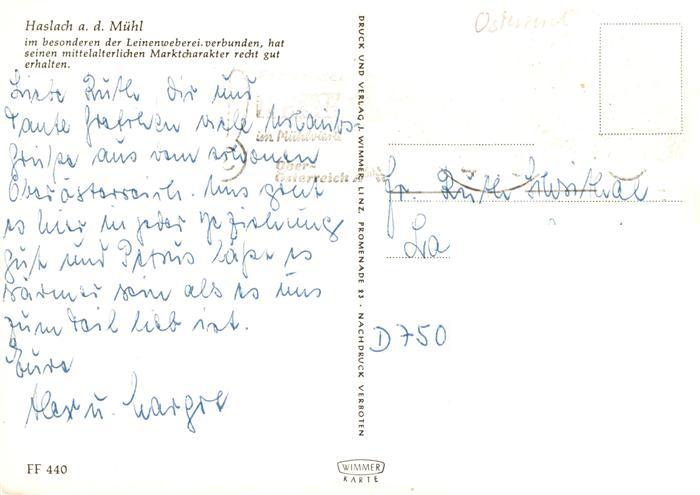 Haslach a. d. Mühl
im besonderen der Leinenweberei verbunden, hat
seinen mittelalterlichen Marktcharakter recht gut
erhalten.
Liebe Ruth dir und
Tante Gretchen viele Urlaubs-
grüße aus dem schönen
Oberösterreich. Uns geht
es hier in jeder Beziehung
gut und Petrus läßt es
wärmer sein als es uns
zum Teil lieb ist.
Eure
Alex u. Margot
FF 440
DRUCK UND VERLAG J. WIMMER, LINZ, PROMENADE 23 · NACHDRUCK VERBOTEN
WIMMER
KARTE
im Mühlviertel
Ober-
Österreich
Fr. Ruth
D 750